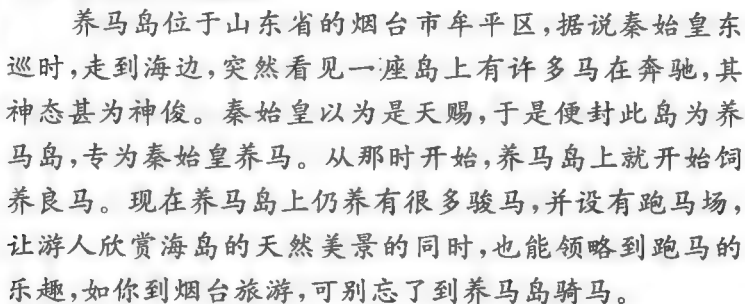 养马岛位于山东省的烟台市牟平区,据说秦始皇东
巡时,走到海边,突然看见一座岛上有许多马在奔驰,其
神态甚为神俊。秦始皇以为是天赐,于是便封此岛为养
马岛,专为秦始皇养马。从那时开始,养马岛上就开始饲
养良马。现在养马岛上仍养有很多骏马,并设有跑马场,
让游人欣赏海岛的天然美景的同时,也能领略到跑马的
乐趣,如你到烟台旅游,可别忘了到养马岛骑马。